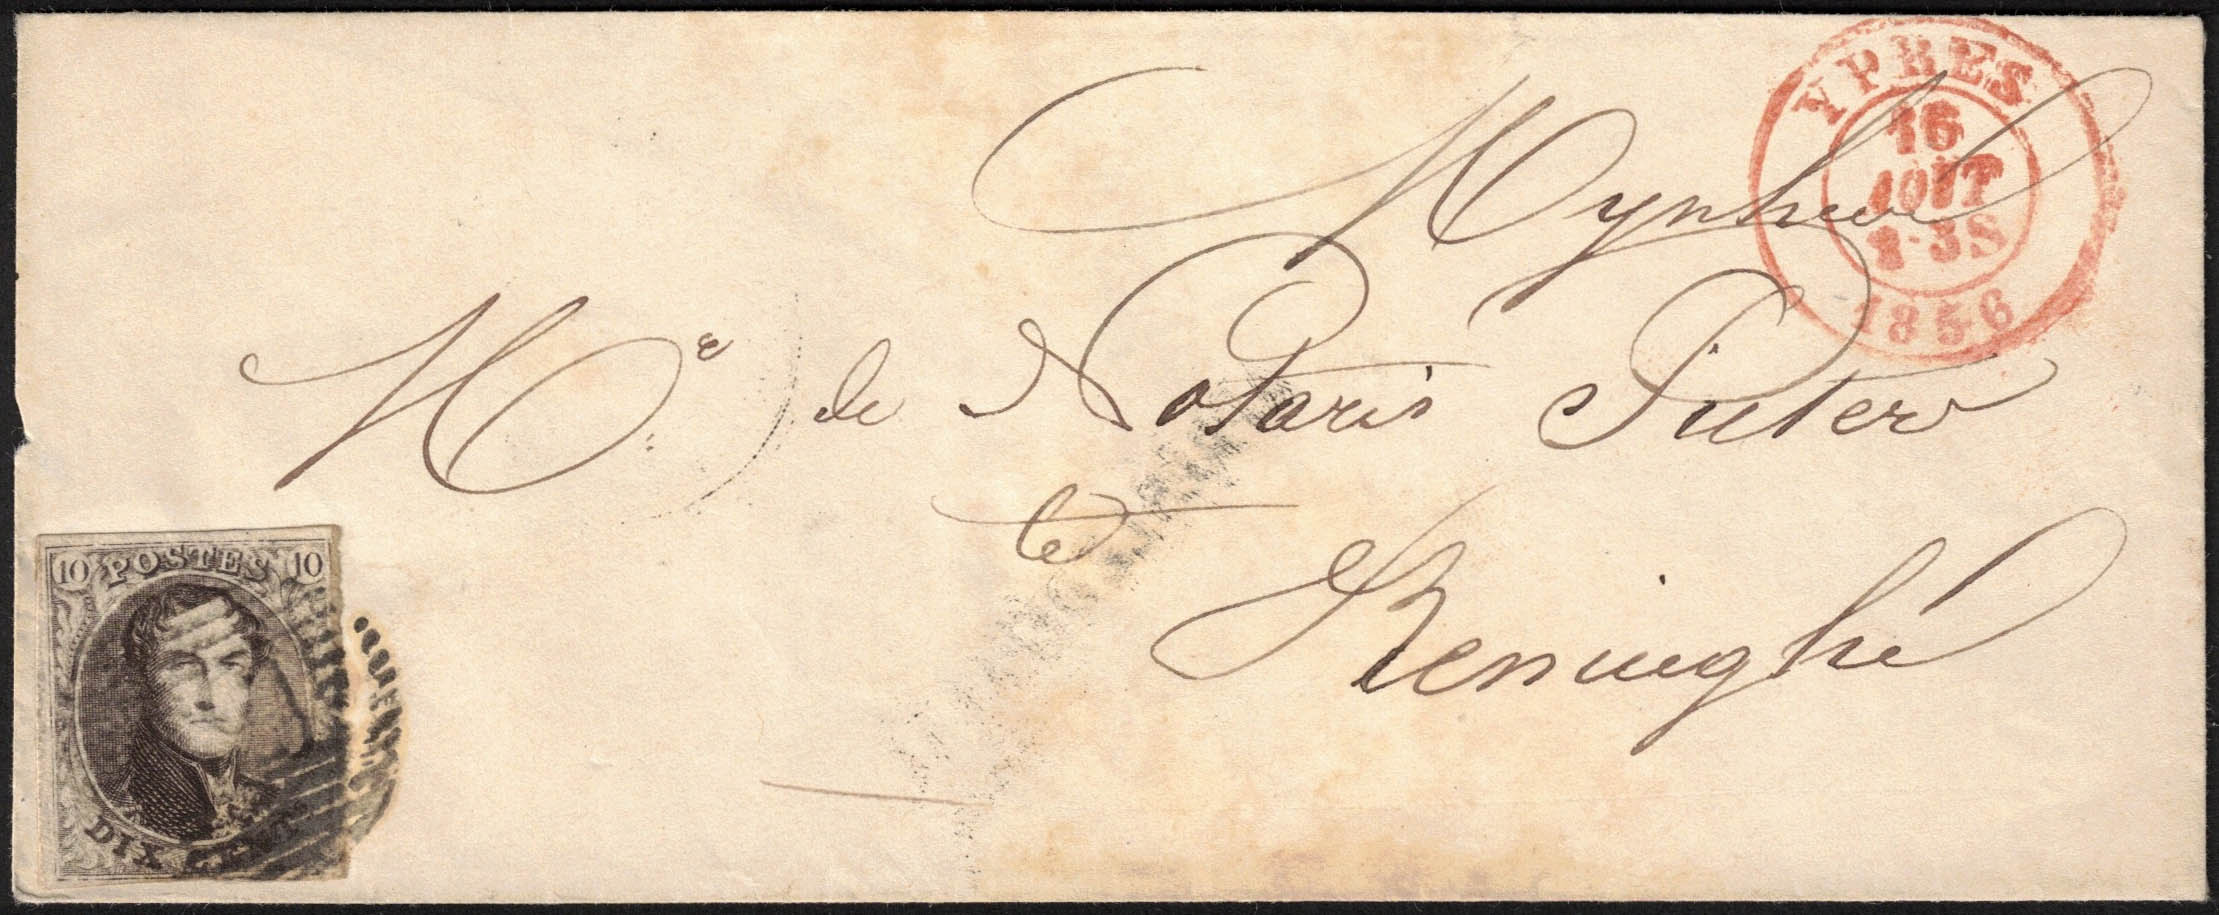 YPRES
16
AOUT
2-3S
1856
Mynheer
Me de Notaris Pieters
te
Reninghe
10 POSTES 10
DIX CENTS